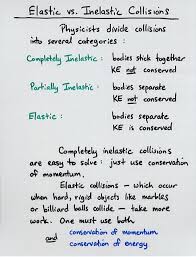 Elastic vs. Inelastic Collisions
Physicists divide collisions
into several categories :
Completely Inelastic : bodies stick together
KE not conserved
Partially Inelastic : bodies separate
KE not conserved
Elastic : bodies separate
KE is conserved
Completely inelastic collisions
are easy to solve : just use conservation
of momentum.
Elastic collisions — which occur
when hard, rigid objects like marbles
or billiard balls collide — take more
work. One must use both
conservation of momentum
and conservation of energy